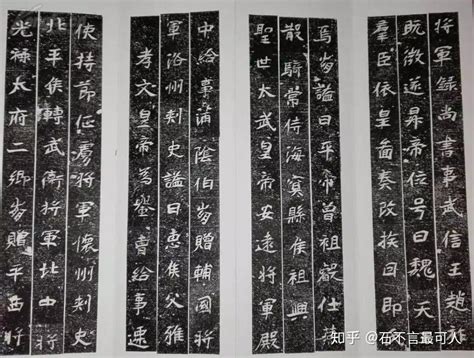 將軍録尚書事武信王趙
既徵遂昇帝位号曰魏天
羣臣依皇啚奏改挨曰即
焉謚曰平帝曾祖叡仕
散騎常侍海冥縣侯祖興
聖世太武皇帝安遠將軍殿
中給事甫陰伯贈輔國將
軍洛州刾史謚曰惠侯父雅
孝文皇帝為曹給事速
使持莭征虜將軍懷州刾史
北平侯轉武衛將軍北中將
光祿太府二卿贈平西將
知乎 @石不言最可人